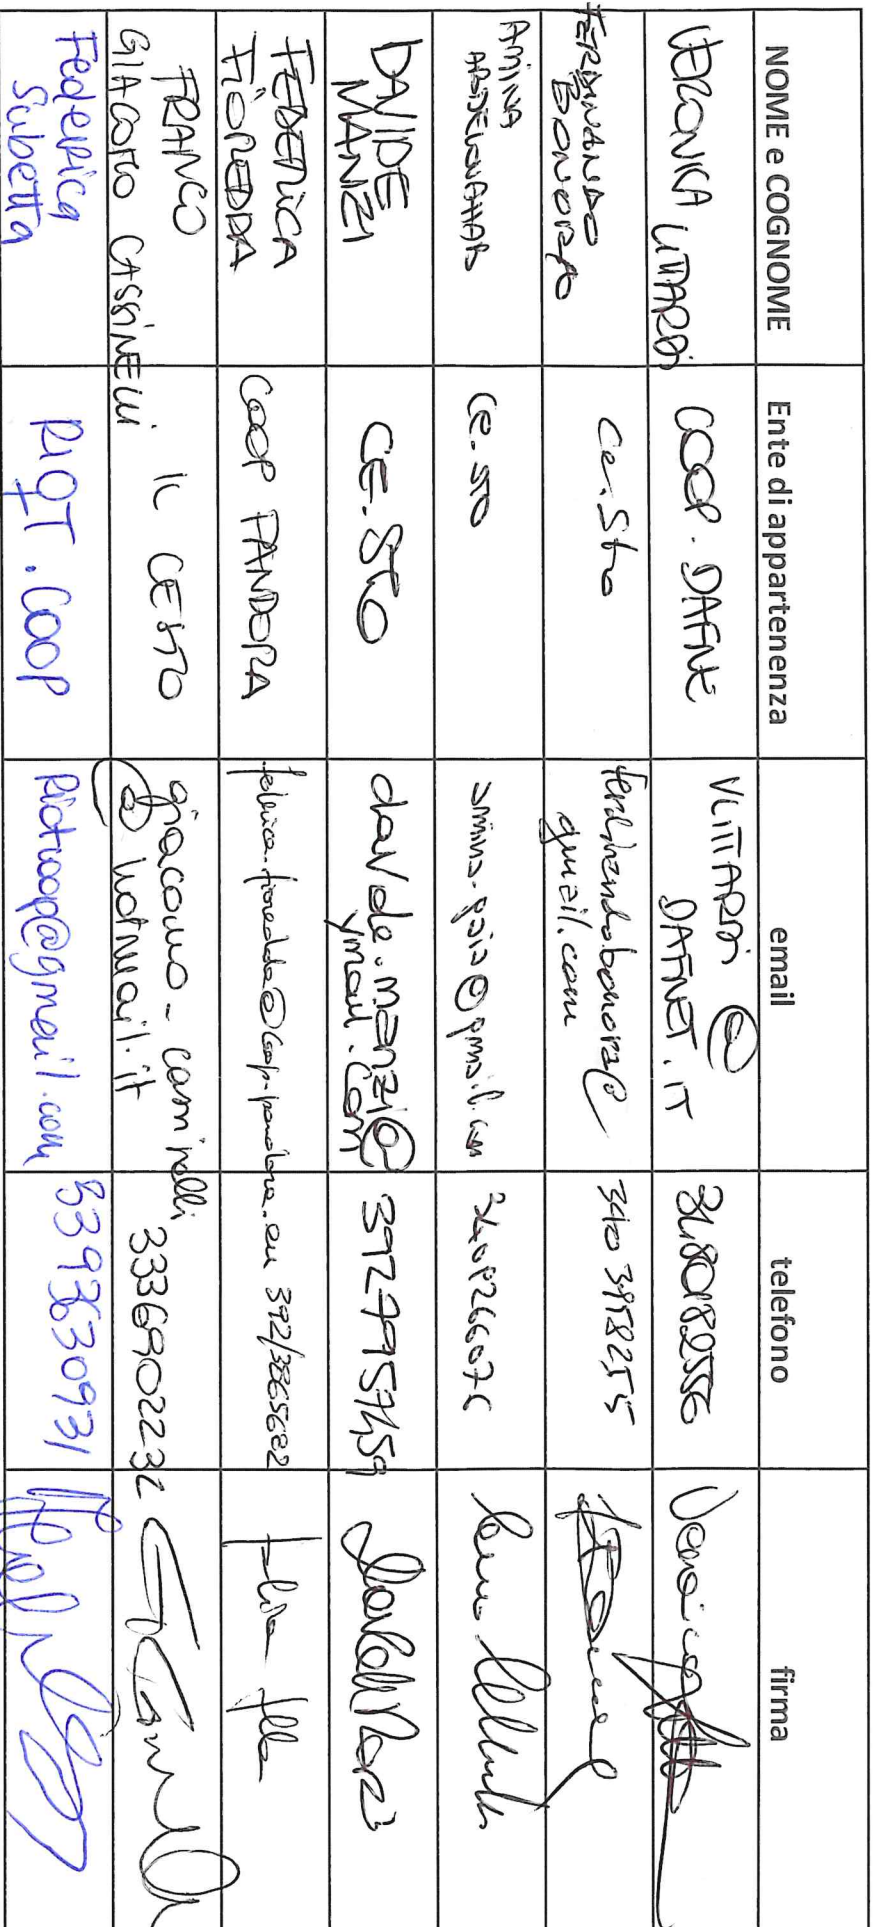 NOME e COGNOME Ente di appartenenza email telefono firma
VERONICA LITTARDI COOP. DAFNE VLITTARDI @
DAFNET.IT 3480182556
FERDINANDO
BONORA Ce.Sto ferdinandobonora@
gmail.com 340 3958255
AMINA
ABDELOUAHAB Ce.STO amina.gaia@gmail.com
DAVIDE
MANZI CE.STO davide.manzi@
ymail.com 3927995459
FEDERICA
FIOREDDA COOP PANDORA federica.fioredda@coop-pandora.eu 392/3865682
FRANCO
GIACOMO CASSINELLI IL CESTO giacomo-cassinelli
@hotmail.it 3336902232
Federica
Subetta RIQT.COOP riqtcoop@gmail.com